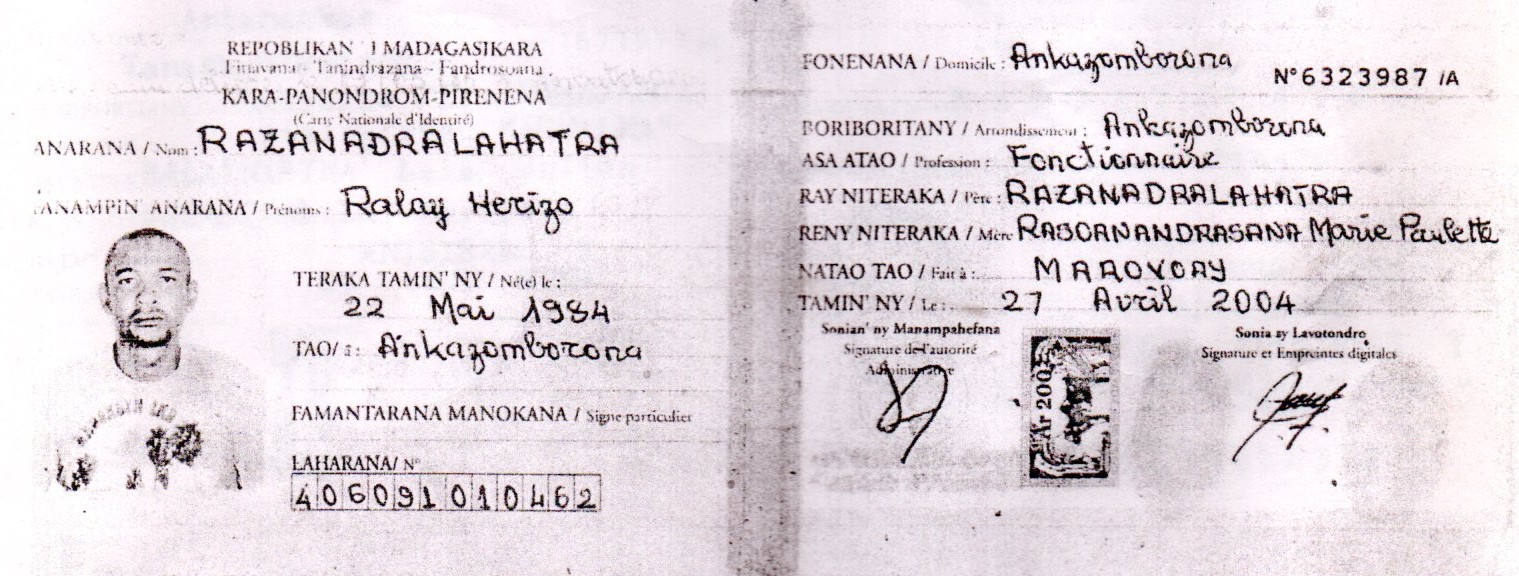 REPOBLIKAN' I MADAGASIKARA
Fitiavana - Tanindrazana - Fandrosoana
KARA-PANONDROM-PIRENENA
(Carte Nationale d'Identité)
ANARANA / Nom : RAZANADRALAHATRA
FANAMPIN' ANARANA / Prénoms : Ralay Herizo
TERAKA TAMIN' NY / Né(e) le :
22 Mai 1984
TAO / à : Ankazomborona
FAMANTARANA MANOKANA / Signe particulier
LAHARANA/ N°
406091010462
FONENANA / Domicile : Ankazomborona
N°6323987 /A
BORIBORITANY / Arrondissement : Ankazomborona
ASA ATAO / Profession : Fonctionnaire
RAY NITERAKA / Père : RAZANADRALAHATRA
RENY NITERAKA / Mère Marie Paulette
NATAO TAO / Fait à : MAROVOAY
TAMIN' NY / Le : 27 Avril 2004
Sonian' ny Manampahefana
Signature de l'autorité
Administrative
Ar 200
Sonia ny Lavotondro
Signature et Empreintes digitales